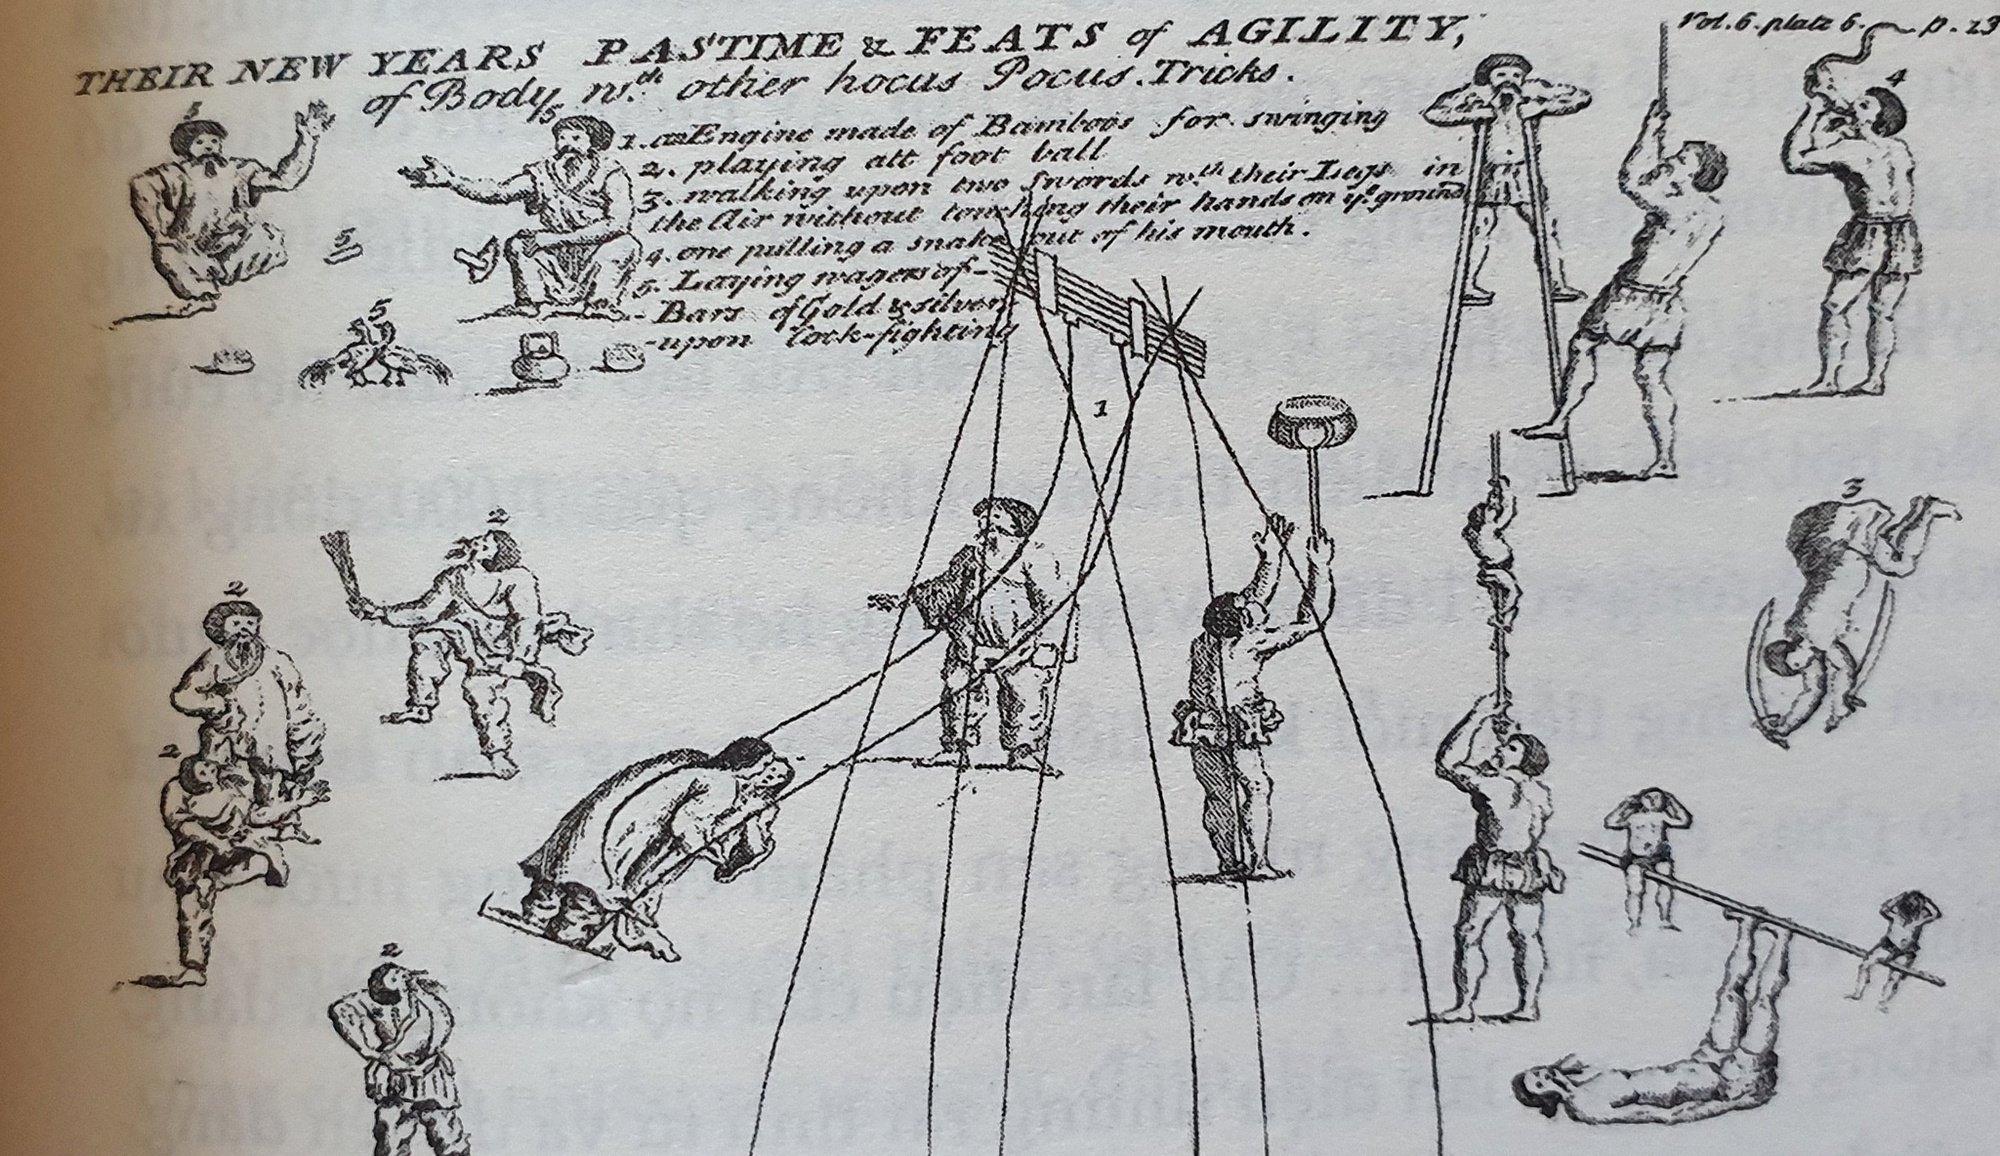 Vol. 6. plate 6. p. 13
THEIR NEW YEARS PASTIME & FEATS of AGILITY,
of Body, wth. other hocus Pocus. Tricks.
1. an Engine made of Bamboos for swinging
2. playing att foot ball
3. walking upon two Swords wth. their Legs in
the Air without touching their hands on ye. ground
4. one pulling a snake out of his mouth.
5. Laying wagers of-
- Bars of Gold & silver
- upon Cock-fighting
5
5
4
5
5
1
2
2
3
2
2